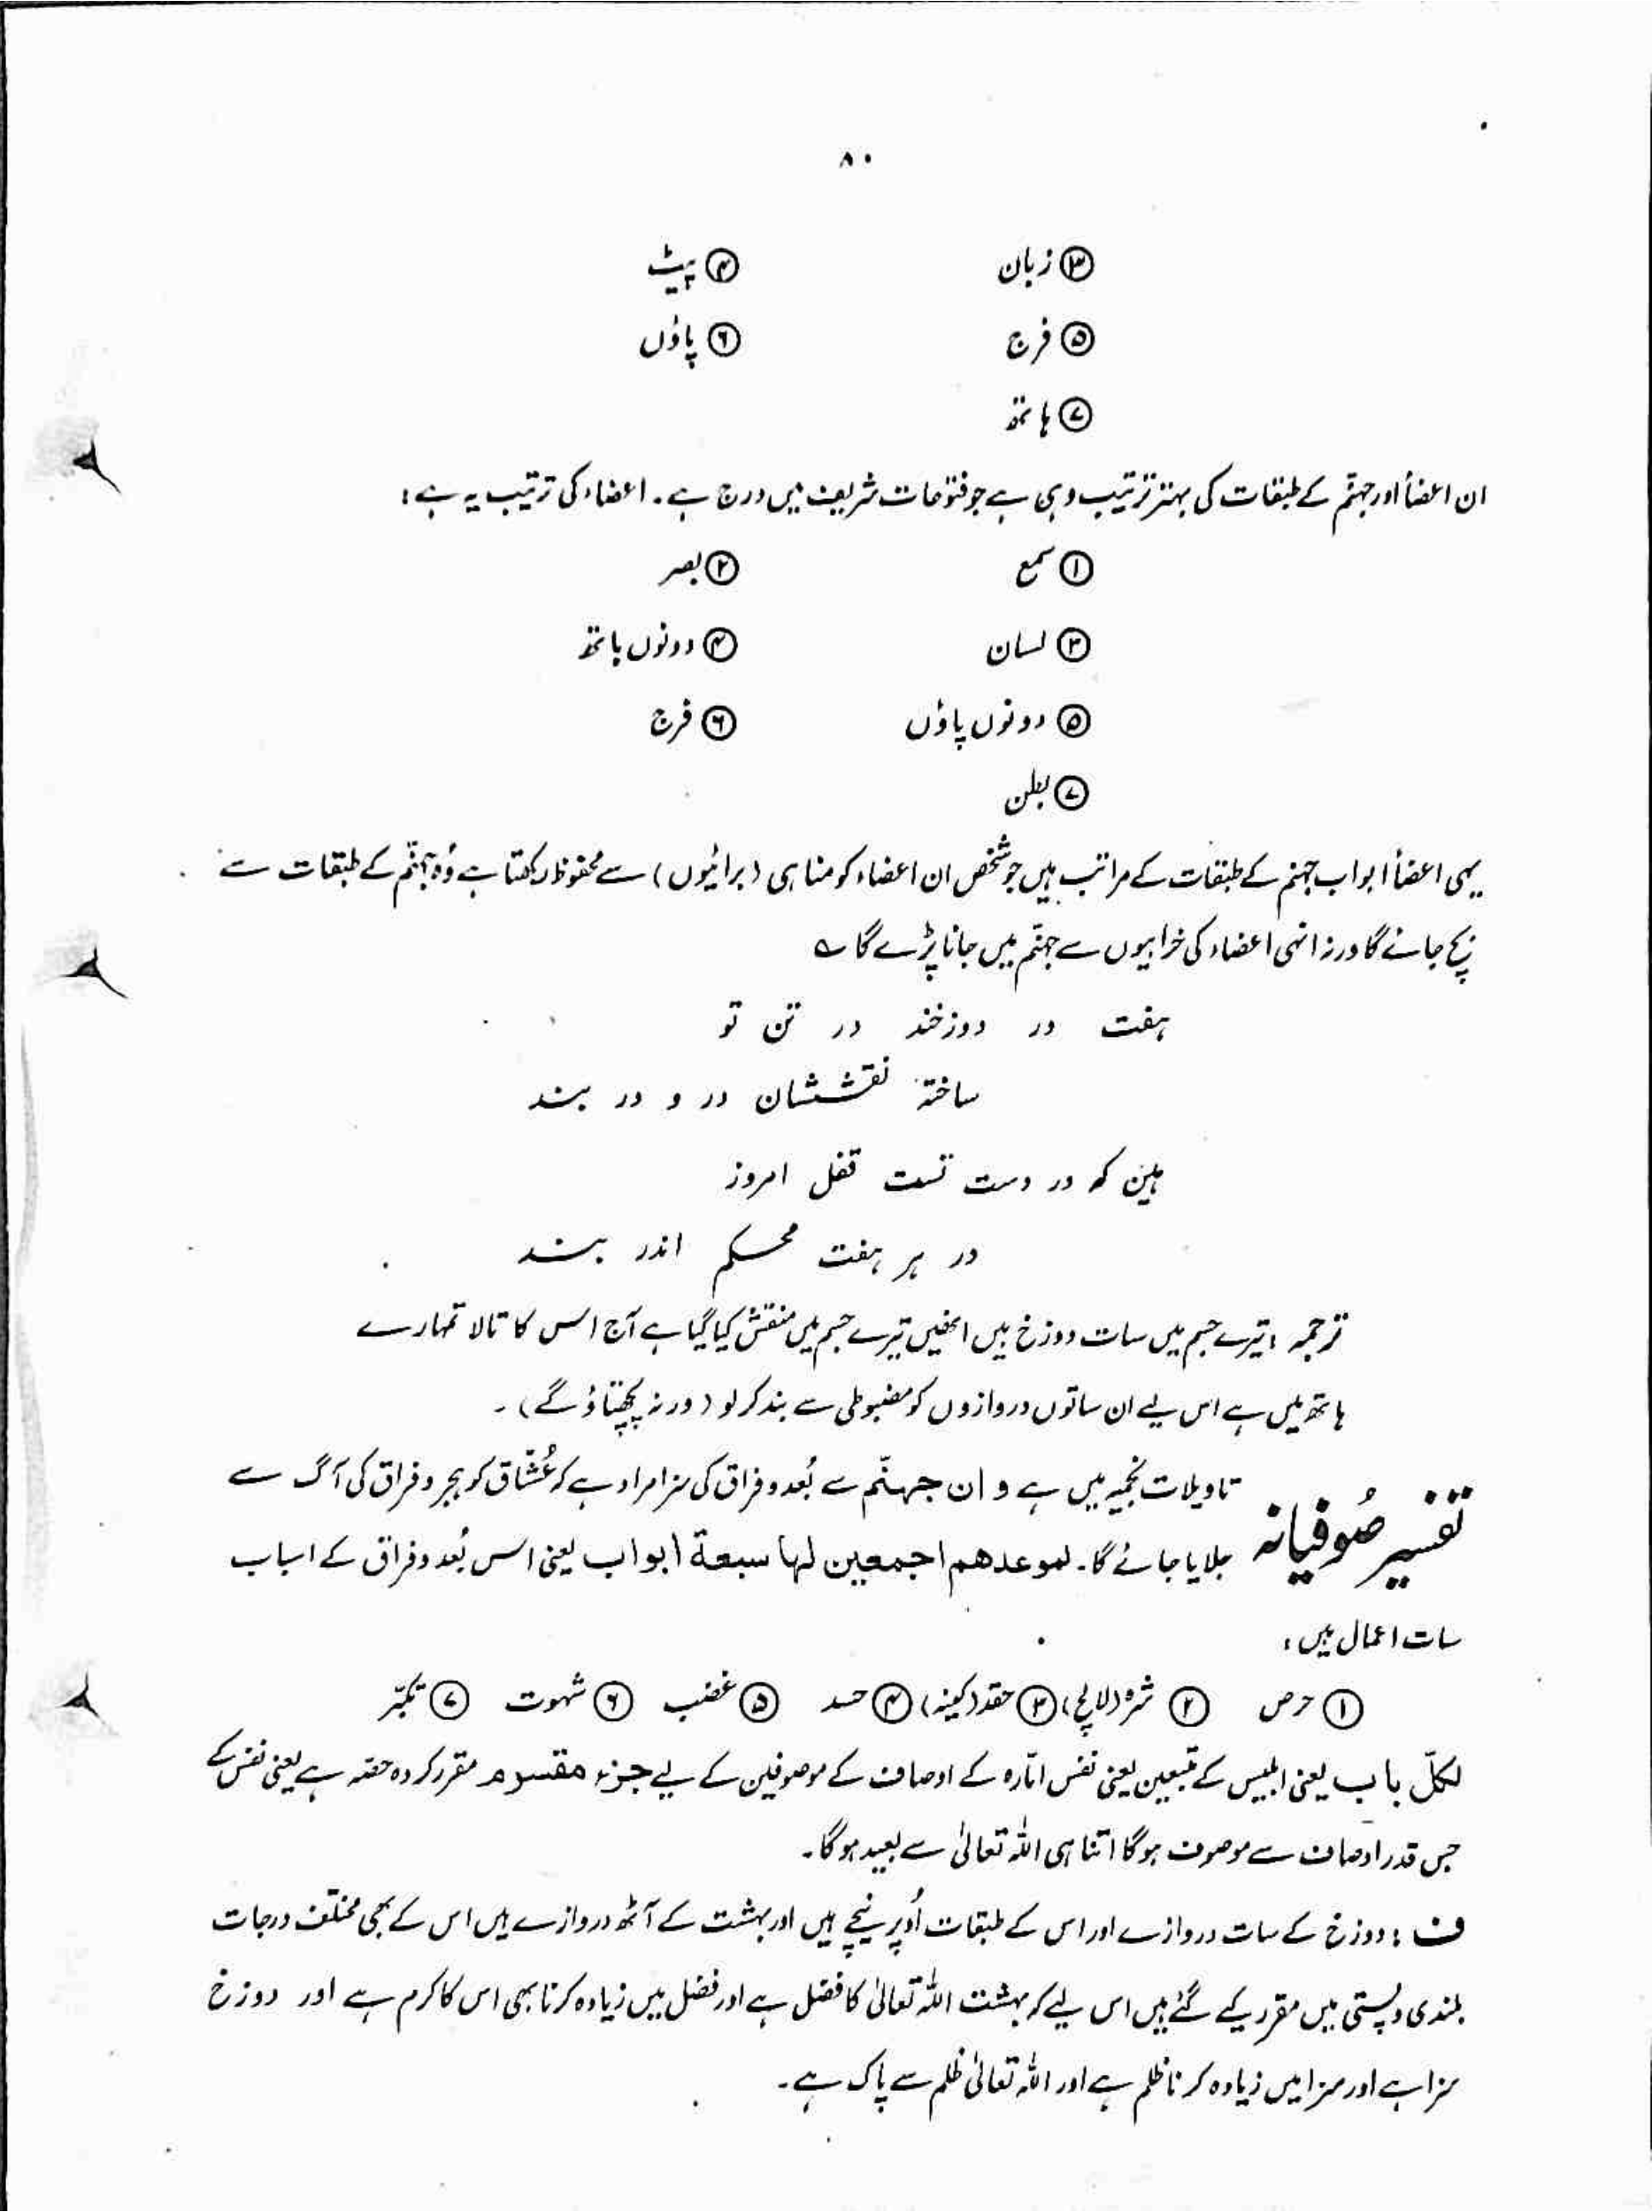 ۸۰
③ زبان ④ پیٹ
⑤ فرج ⑥ پاؤں
⑦ ہاتھ
ان اعضأ اور جہنّم کے طبقات کی بہتر ترتیب وہی ہے جو فتوحات شریف میں درج ہے۔ اعضاء کی ترتیب یہ ہے:
① سمع ② بصر
③ لسان ④ دونوں ہاتھ
⑤ دونوں پاؤں ⑥ فرج
⑦ بطن
یہی اعضأ ابواب جہنم کے طبقات کے مراتب ہیں جو شخص ان اعضاء کو مناہی (برائیوں) سے محفوظ رکھتا ہے وُہ جہنّم کے طبقات سے
بچ جائے گا ورنہ انہی اعضاء کی خرابیوں سے جہنّم میں جانا پڑے گا ؎
ہفت در دوزخند در تن تو
ساختہ نقششان در و در بند
ہین کہ در دست تست قفل امروز
در ہر ہفت محکم اندر بند
ترجمہ : تیرے جسم میں سات دوزخ ہیں انھیں تیرے جسم میں منقش کیا گیا ہے آج اس کا تالا تمہارے
ہاتھ میں ہے اس لیے ان ساتوں دروازوں کو مضبوطی سے بند کر لو (ورنہ پچھتاؤ گے)۔
تفسیر صُوفیانہ تاویلات نجمیہ میں ہے و ان جہنّم سے بُعد و فراق کی سزا مراد ہے کہ عُشّاق کو ہجر و فراق کی آگ سے
جلایا جائے گا۔ لموعدھم اجمعین لہا سبعة ابواب یعنی اس بُعد و فراق کے اسباب
سات اعمال ہیں :
① حرص ② شرہ (لالچ) ③ حقد (کینہ) ④ حسد ⑤ غضب ⑥ شہوت ⑦ تکبّر
لکلّ باب یعنی ابلیس کے متبعین یعنی نفس امّارہ کے اوصاف کے موصوفین کے لیے جزء مقسوم مقرر کردہ حصّہ ہے یعنی نفس کے
جس قدر اوصاف سے موصوف ہوگا اتنا ہی اللہ تعالیٰ سے بعید ہوگا۔
ف : دوزخ کے سات دروازے اور اس کے طبقات اُوپر نیچے ہیں اور بہشت کے آٹھ دروازے ہیں اس کے بھی مختلف درجات
بلندی و پستی میں مقرر کیے گئے ہیں اس لیے کہ بہشت اللہ تعالیٰ کا فضل ہے اور فضل میں زیادہ کرنا بھی اس کا کرم ہے اور دوزخ
سزا ہے اور سزا میں زیادہ کرنا ظلم ہے اور اللہ تعالیٰ ظلم سے پاک ہے۔